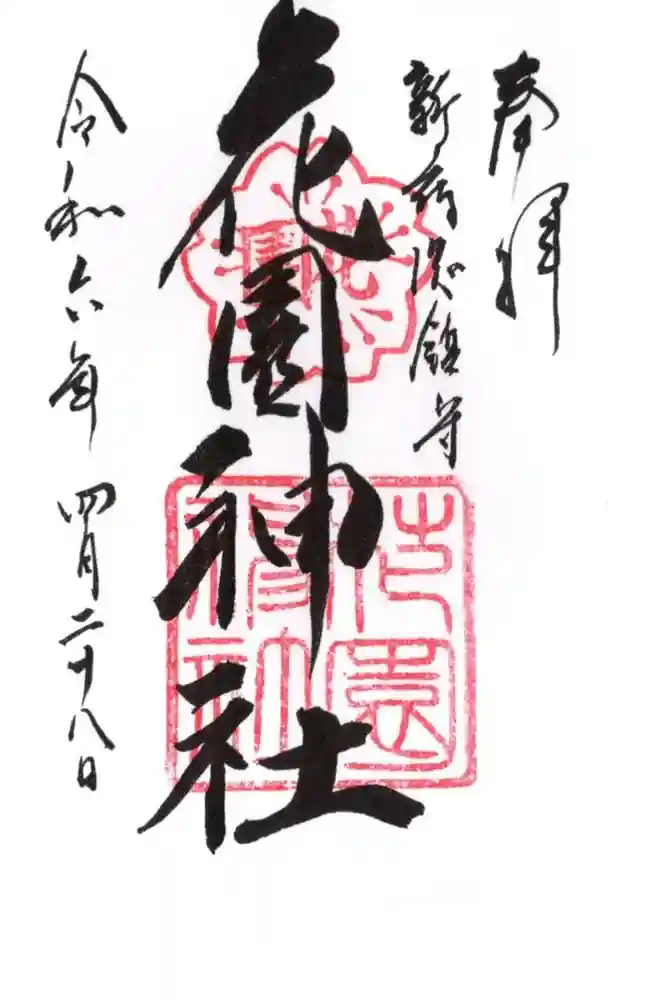 奉拝
新宿総鎮守
花園神社
花園
花園神社
令和六年 四月二十八日